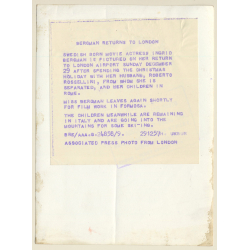 BERGMAN RETURNS TO LONDON
SWEDISH BORN MOVIE ACTRESS INGRID
BERGMAN IS PICTURED ON HER RETURN
TO LONDON AIRPORT SUNDAY DECEMBER
29 AFTER SPENDING THE CHRISTMAS
HOLIDAY WITH HER HUSBAND, ROBERTO
ROSSELLINI, FROM WHOM SHE IS
SEPARATED, AND HER CHILDREN IN
ROME.
MISS BERGMAN LEAVES AGAIN SHORTLY
FOR FILM WORK IN FORMOSA.
THE CHILDREN MEANWHILE ARE REMAINING
IN ITALY AND ARE GOING INTO THE
MOUNTAINS FOR SOME SKIING.
ASSOCIATED PRESS PHOTO FROM LONDON